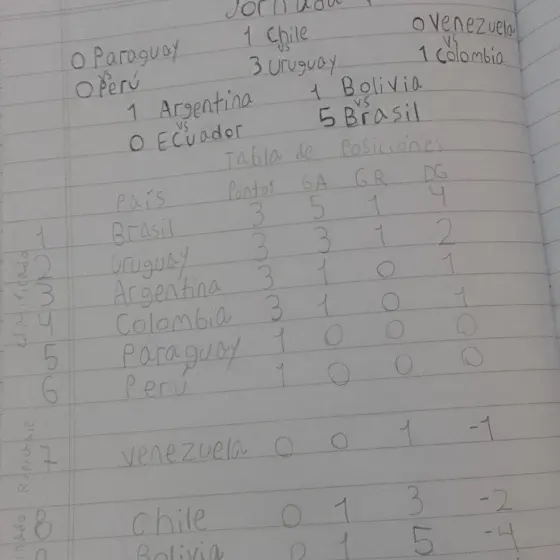 Jornada 1
0 Paraguay vs 0 Perú
1 Chile vs 3 Uruguay
0 Venezuela vs 1 Colombia
1 Argentina vs 0 Ecuador
1 Bolivia vs 5 Brasil
Tabla de Posiciones
País Puntos GA GR DG
1 Brasil 3 5 1 4
2 Uruguay 3 3 1 2
3 Argentina 3 1 0 1
4 Colombia 3 1 0 1
5 Paraguay 1 0 0 0
6 Perú 1 0 0 0
7 Venezuela 0 0 1 -1
8 Chile 0 1 3 -2
Bolivia 0 1 5 -4